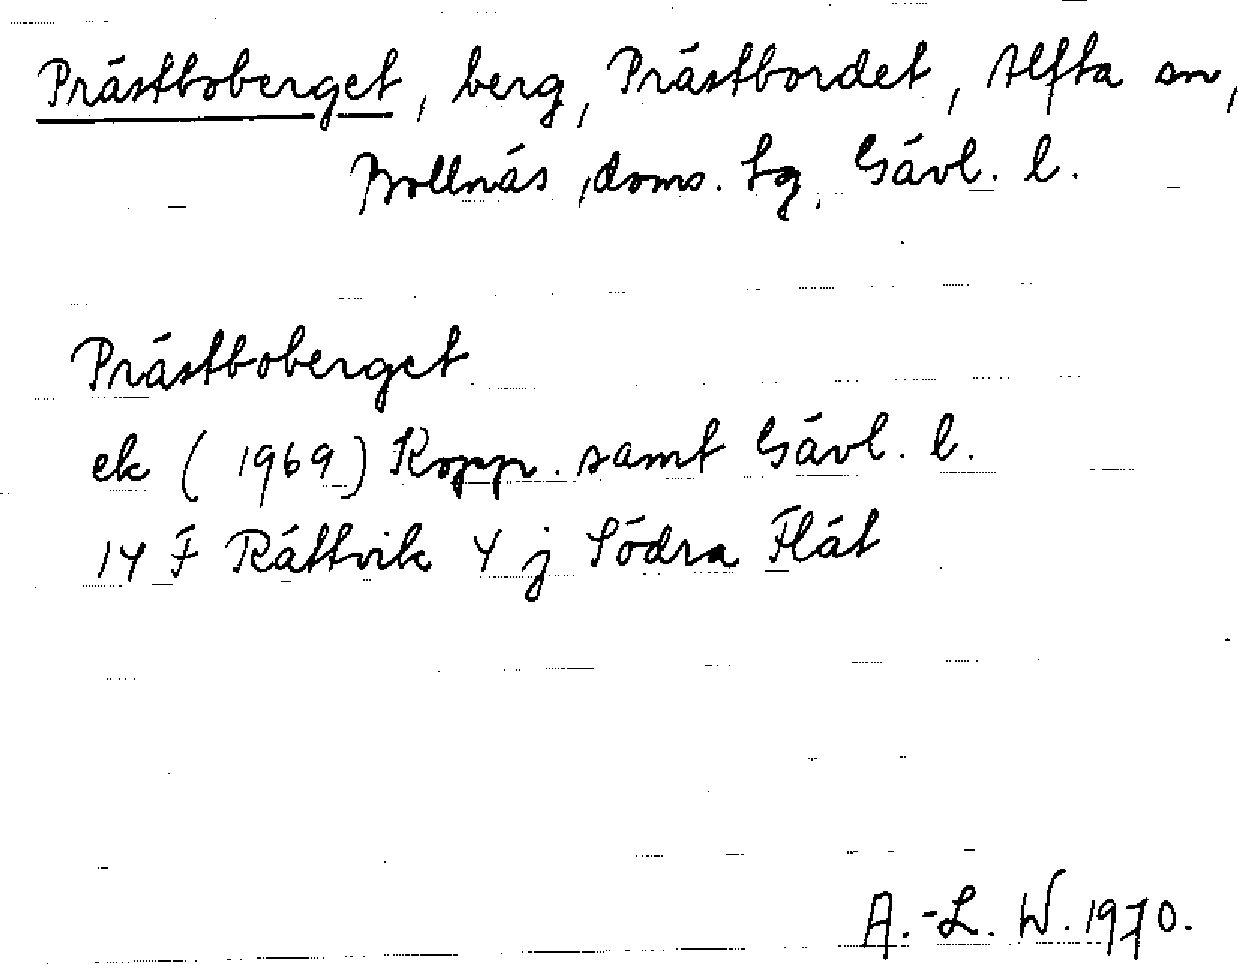 Prästboberget, berg, Prästbordet, Alfta sn,
Bollnäs, doms. tg, Gävl. l.
Prästboberget
ek (1969) Kopp. samt Gävl. l.
14 F Rättvik 4 j Södra Flät
A.-L. W. 1970.